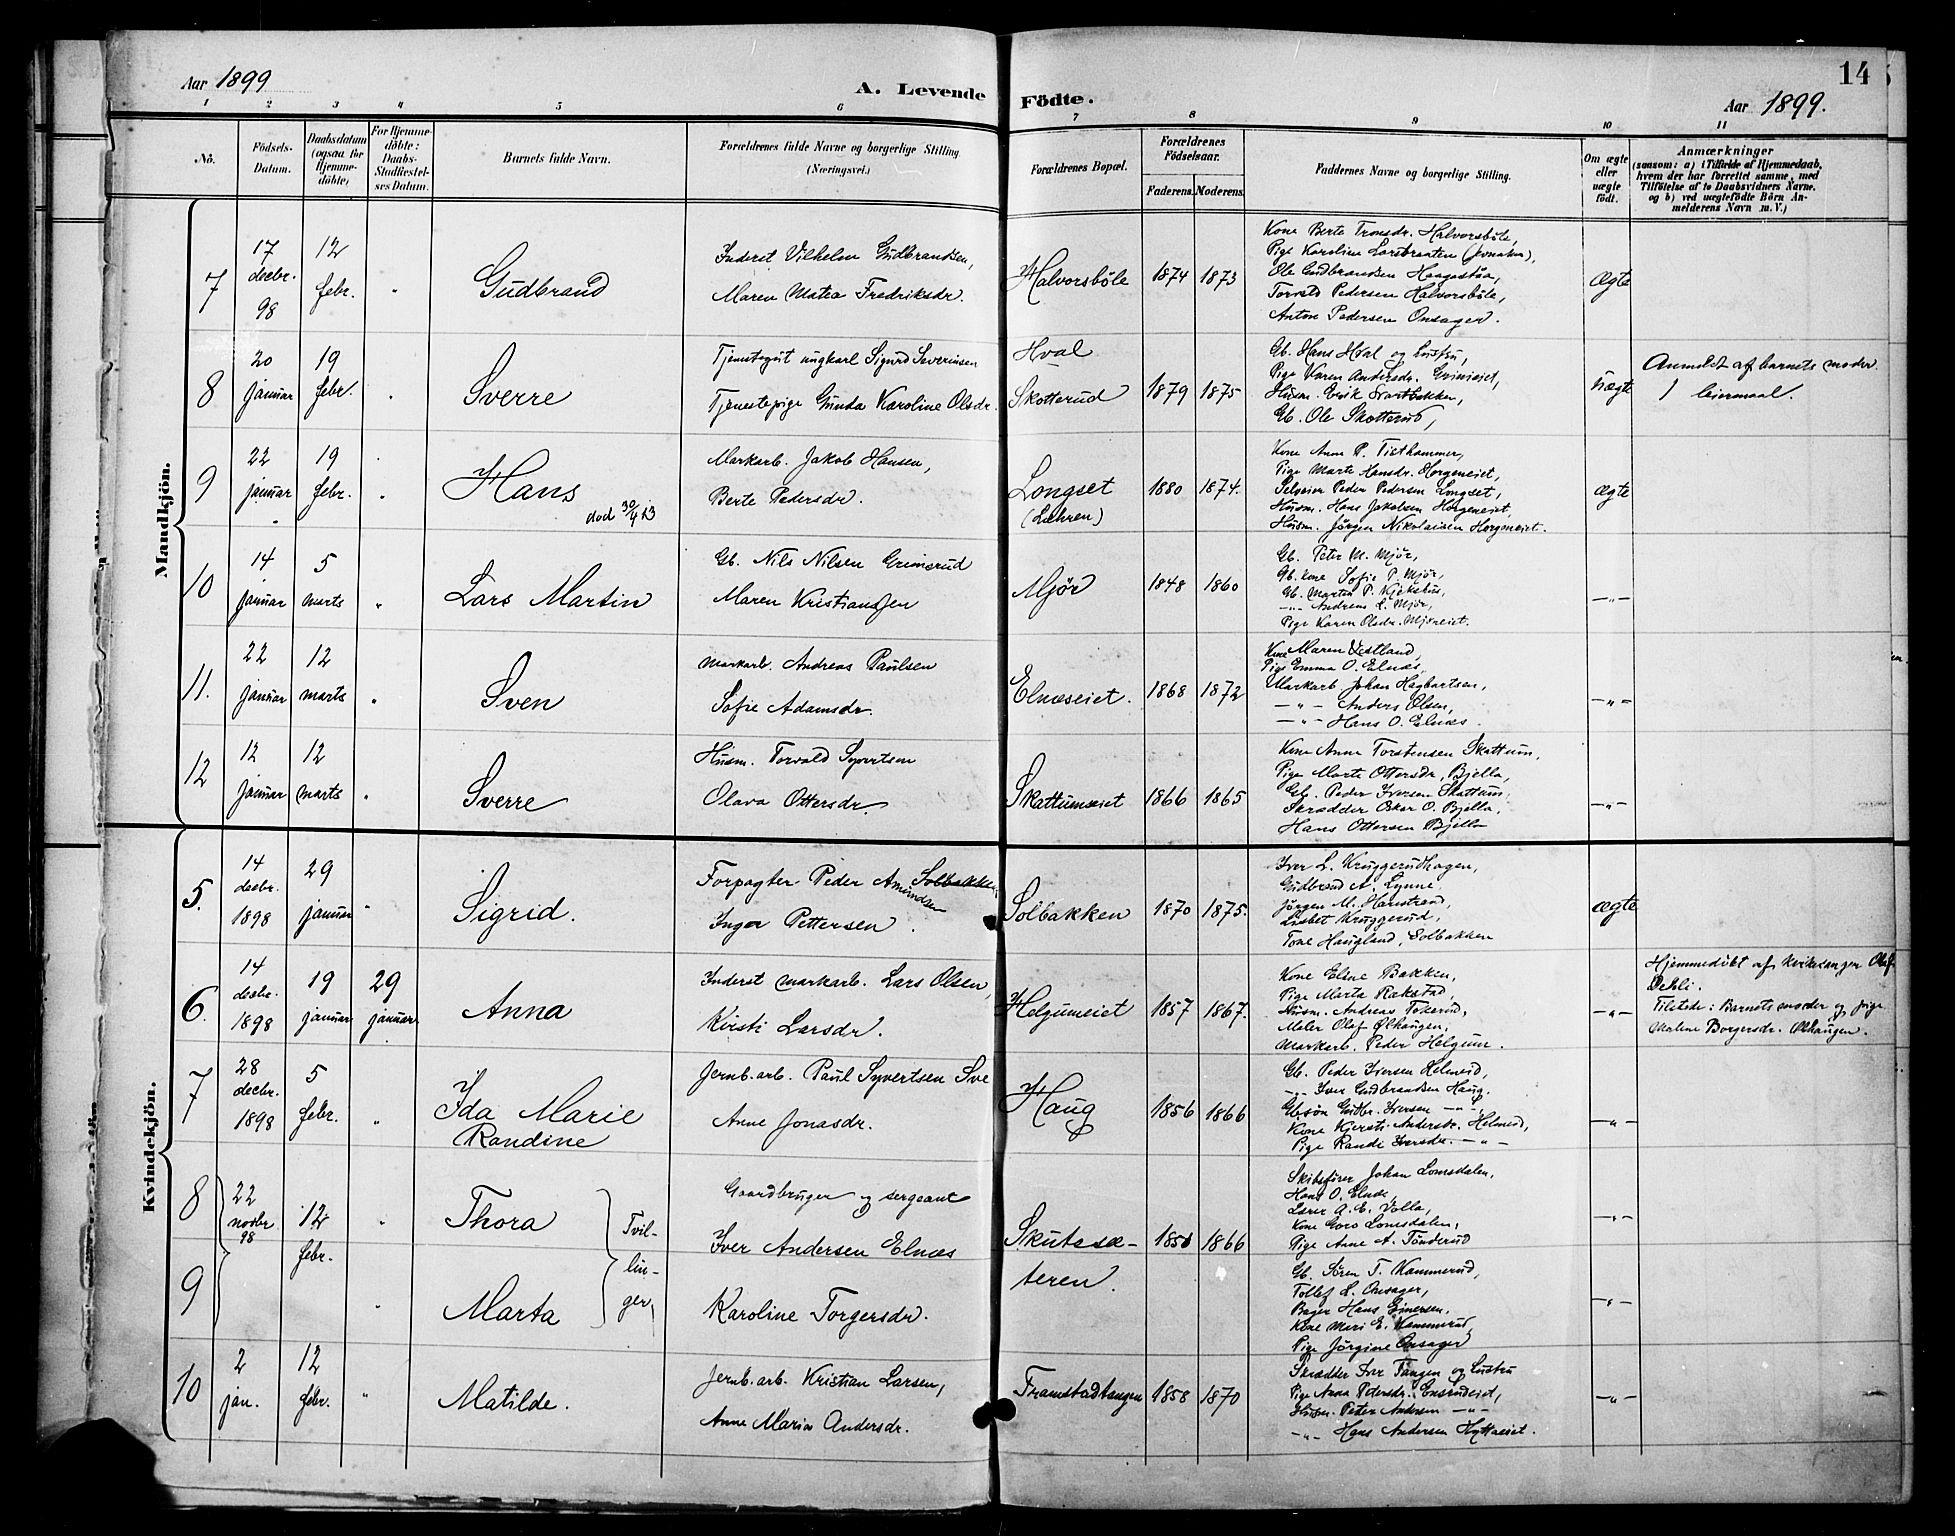 Aar 1899
A. Levende Födte.
14
Aar 1899.
1 2 3 4 5 6 7 8 9 10 11
No.
Födsels-Datum.
Daabsdatum (ogsaa for Hjemme-döbte)
For Hjemme-döbte: Daabs-Stadfæstel-ses Datum.
Barnets fulde Navn.
Forældrenes fulde Navne og borgerlige Stilling (Næringsvei.)
Forældrenes Bopæl.
Forældrenes Födselsaar.
Faderens. Moderens.
Faddernes Navne og borgerlige Stilling.
Om ægte eller uægte födt.
Anmærkninger
(saasom: a) i Tilfælde af Hjemmedaab, hvem der har forrettet samme, med Tilföielse af to Daabsvidners Navne. og b) ved uægtefödte Börn An-melderens Navn m. V.)
Mandkjön.
7
17 decbr. 98
12 febr.
"
Gudbrand
Inderst Vilhelm Gudbrandsen,
Maren Matea Fredriksdr.
Halvorsböle
1874 1873
Kone Berte Tronsdr. Halvorsböle,
Pige Karoline Larsbraaten (Jevnaker),
Ole Gudbrandsen Haagastaa,
Torvald Pedersen Halvorsböle,
Anton Pedersen Onsager.
Ægte
8
20 januar
19 febr.
"
Sverre
Tjenestegut ungkarl Sigurd Severinsen
Tjenestepige Gunda Karoline Olsdr.
Hval
Skotterud
1879 1875
Gb. Hans Hval og hustru,
Pige Karen Andersdr. Grimeiet,
Husm. Erik Svartbakken,
Gb. Ole Skotterud,
Uægte
Anmeldt af barnets moder.
1 leiermaal.
9
22 januar
19 febr.
"
Hans
död 30/4 13
Markarb. Jakob Hansen,
Berte Pedersdr.
Longset
(Læhren)
1880 1874.
Kone Anne P. Tisthammer,
Pige Marte Hansdr. Horgeneiet,
Selveier Peder Pedersen Longset,
Husm. Hans Jakobsen Horgeneiet,
Husm. Jörgen Nikolaisen Horgeneiet.
ægte
10
14 januar
5 marts
"
Lars Martin
Gb. Nils Nilsen Grimsrud
Maren Kristiansen
Mjör
1848 1860
Gb. Peter M. Mjör,
Gb. kone Sofie P. Mjör,
Gb. Martin P. Kjekshus,
-"- Andreas L. Mjör,
Pige Karen Olsdr. Mjöreiet.
-"-
11.
22 januar
12 marts
"
Sven
Markarb. Andreas Paulsen
Sofie Adamsdr.
Elnæseiet.
1868 1872
Kone Maren Vestland,
Pige Emma O. Elnæs,
Markarb Johan Hagbartsen,
-"- Anders Olsen,
-"- Hans O. Elnæs.
-"-
12
12 januar
12 marts
"
Sverre
Husm. Torvald Syvertsen
Olava Ottersdr.
Skattumseiet
1866 1865
Kone Anne Torstensen Skattum,
Pige Marte Ottersdr. Bjella,
Gb. Peder Iversen Skattum,
Skrædder Oskar O. Bjella,
Hans Ottersen Bjella
-"-
Kvindekjön.
5.
14 decbr. 1898
29 januar
"
Sigrid.
Forpagter Peder Amundsen Solbakken,
Inger Pettersen.
Solbakken
1870 1875.
Iver L. Kruggerudhagen,
Gudbrand A. Lynne,
Jörgen M. Harstrand,
Lisbet Kruggerud,
Tone Haugland, Solbakken
ægte
6.
14 decbr. 1898
19 januar
29 januar
Anna
Inderst markarb. Lars Olsen,
Kirsti Larsdr.
Helgumeiet
1857 1867.
Kone Eline Bakken,
Pige Marta Rakstad,
Husm. Andreas Tokerud,
Maler Olaf Ölhaugen,
Markarb. Peder Helgum.
-"-
Hjemmedöbt af kirkesanger Olaf Dehli.
Tilstede: Barnets moder og pige
Malene Borgersdr. Ölhaugen.
7
28 decbr. 1898
5 febr.
"
Ida Marie
Randine
Jernb. arb. Paul Syvertsen Sve
Anne Jonasdr.
Haug
1856 1866
Gb. Peder Iversen Helmeid,
-"- Iver Gudbrandsen Haug.
Gbsön Gudbr. Iversen -"-,
Kone Kjersti Andersdr. Helmeid,
Pige Randi Iversdr. -"-
-"-
8
22 novbr. 98
12 febr.
"
Thora
Tvil-lin-ger,
Gaardbruger og sergeant
Iver Andersen Elnæs
Karoline Torgersdr.
Skutesæ-
teren.
1858 1866
Skibsförer Johan Lomsdalen,
Hans O. Elnæs,
Lærer A. E. Volla,
Kone Goro Lomsdalen,
Pige Anne A. Tönderud
-"-
9
"
Marta
Gb. Sören T. Kammerud,
Tollef L. Onsager,
Bager Hans Ejnersen,
Kone Mari E. Kammerud,
Pige Jörgine Onsager
-"-
10
2 jan.
12 febr.
"
Matilde.
Jernb. arb. Kristian Larsen,
Anne Maria Andersdr.
Framstadtangen
1858 1870
Skrædder Iver Tangen og hustru
Pige Anna Pedersdr. Ensrudeiet,
Husm. Peter Andersen -"-
-"- Hans Andersen Hyttaeiet.
-"-